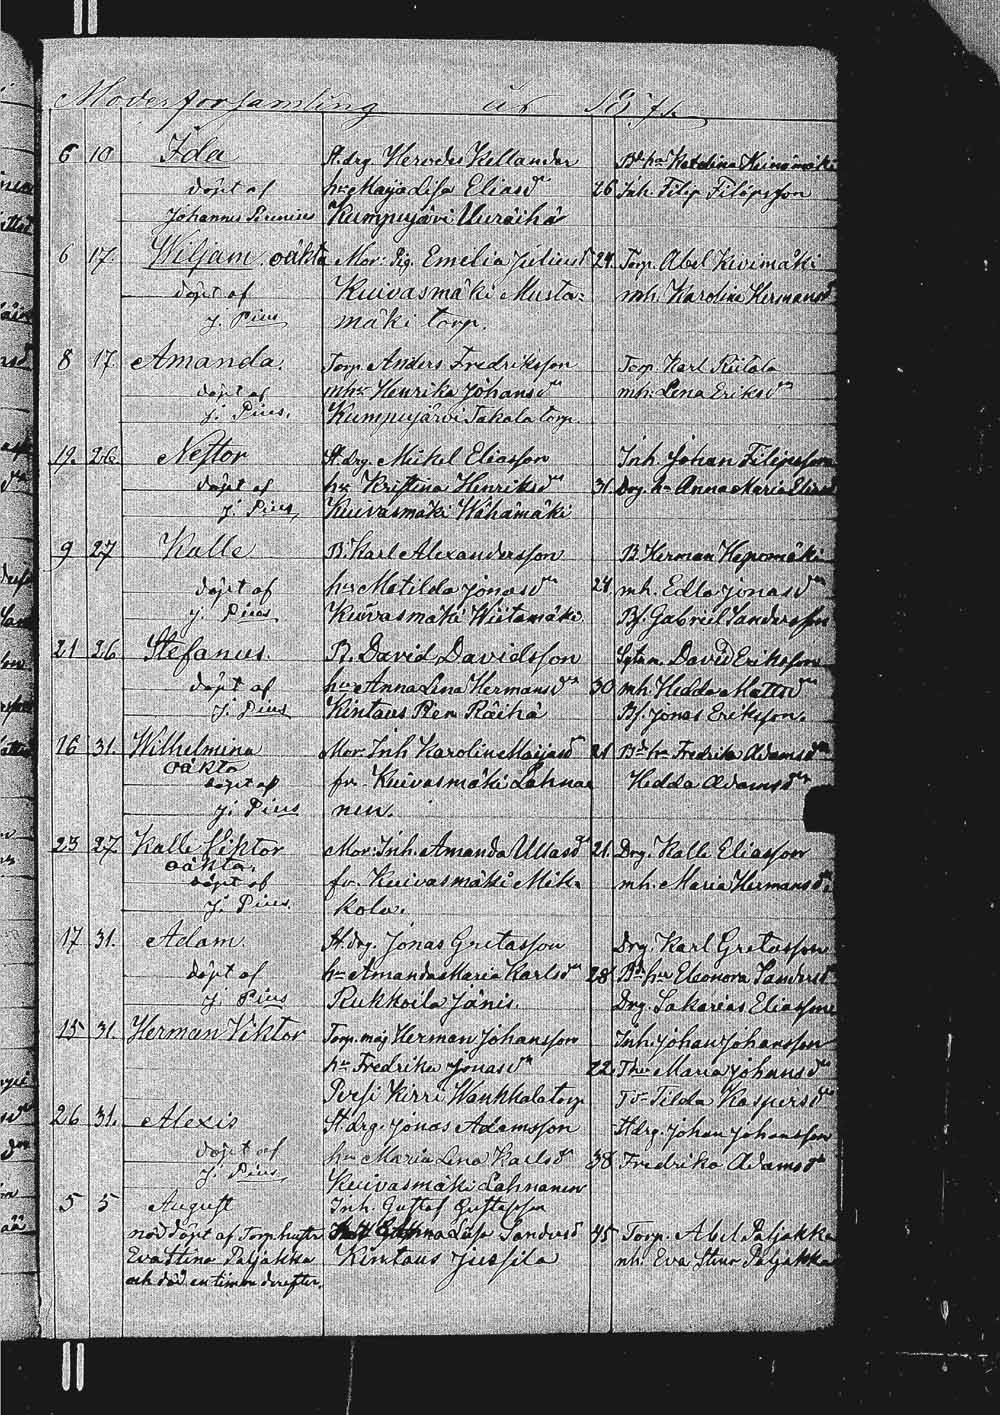 Moderförsamling år 187
6 10 Ida St.drg. Herodes Kellander Bd. hu Katarina Heinämäki
döpt af hu Maija Lisa Eliasd:r 26 Inh. Filip Filipsson
Johannes Pironius Kumpujärvi Uuräihä
6 17. Wiljam. oäkta Mor: Pig. Emelia Juliusd 24. Torp. Abel Kivimäki
döpt af Kuivasmäki Musta= mh. Karolina Hermansd
J. Pius mäki torp.
8 17. Amanda. Torp. Anders Fredriksson Torp. Karl Riitala
döpt af mhu Henrika Johansd:r mh. Lena Eriksd:r
J. Pius. Kumpujärvi Takala torp.
19. 26. Nestor St.drg. Mickel Eliasson Inh. Johan Filipsson
döpt af hu Kristina Henriksd:r 31. Drg. hu Anna Maria Eliasd
J. Pius, Kuivasmäki Wähämäki
9 27 Kalle B. Karl Alexandersson B. Herman Heposmäki
döpt af hu Matilda Jonasd:r 24. mh. Edla Jonasd:r
J. Pius Kuivasmäki Wiitamäki Bs. Gabriel Sandersson
21 26 Stefanus. B. David Davidsson Sytn. David Eriksson
döpt af hu Anna Lena Hermansd:r 30 mh. Hedda Mattsd:r
J. Pius Kintaus Pien Räihä Bs. Jonas Eriksson.
16 31. Wilhelmina Mor: Inh Karolin Maijasd:r 21 Bd. hu Fredrika Adamsd:r
oäkta
döpt af fr. Kuivasmäki Lahna= Hedda Adamsd:r
J. Pius nen.
23 27. Kalle Viktor Mor: Inh. Amanda Ullasd:r 21. Drg. Kalle Eliasson
oäkta.
döpt af fr. Kuivasmäki Mik= mh. Maria Hermansd:r
J. Pius. kola.
17 31. Adam. St.drg. Jonas Gretasson Drg. Karl Gretasson
döpt af hu Amanda Maria Karlsd:r 28. Bd. hu Eleonora Sandersd
J. Pius Rukkoila Jänis. Drg. Sakarias Eliasson
15 31. Herman Viktor Torp. måg Herman Johansson Inh. Johan Johansson
hu Fredrika Jonasd:r 22. Thu Maria Johansd:r
Persi Kirri Wankkala torp Td. Tilda Kaspersd:r
26 31. Alexis St.drg. Jonas Adamsson St.drg. Johan Johansson
döpt af hu Maria Lena Karlsd:r 38 Fredrika Adamsd:r
J. Pius Kuivasmäki Lahnanen
5 5 August Inh. Gustaf Gustafsson
nöd döpt af Torp hustr. Lisa Sandersd 45 Torp. Abel Paljakka
Eva Stina Paljakka Kintaus Jussila mh. Eva Stina Paljakka
och död en timme derefter.